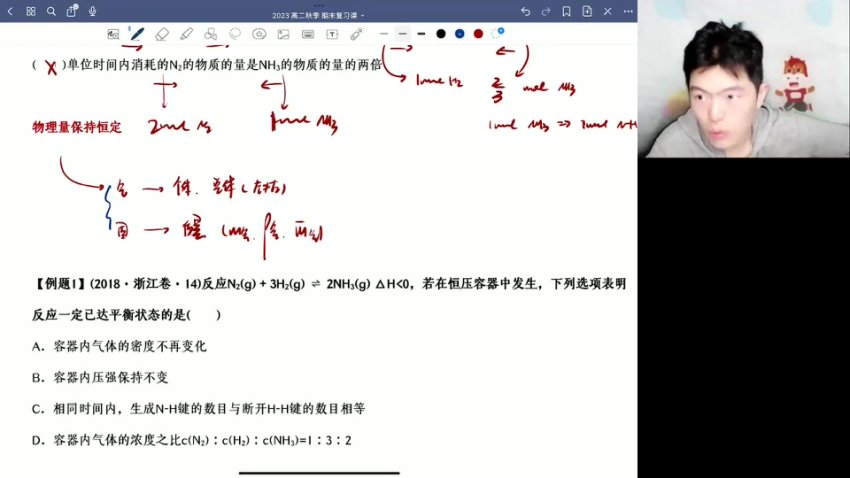 2023 高二秋季 期末复习课
( X )单位时间内消耗的N₂的物质的量是NH₃的物质的量的两倍
1mol H₂ 2/3 mol NH₃
物理量保持恒定 2mol N₂ 1mol NH₃
1mol NH₃ ⇒
【例题1】(2018·浙江卷·14)反应N₂(g) + 3H₂(g) ⇌ 2NH₃(g) △H<0，若在恒压容器中发生，下列选项表明
反应一定已达平衡状态的是( )
A．容器内气体的密度不再变化
B．容器内压强保持不变
C．相同时间内，生成N-H键的数目与断开H-H键的数目相等
D．容器内气体的浓度之比c(N₂)∶c(H₂)∶c(NH₃)=1∶3∶2